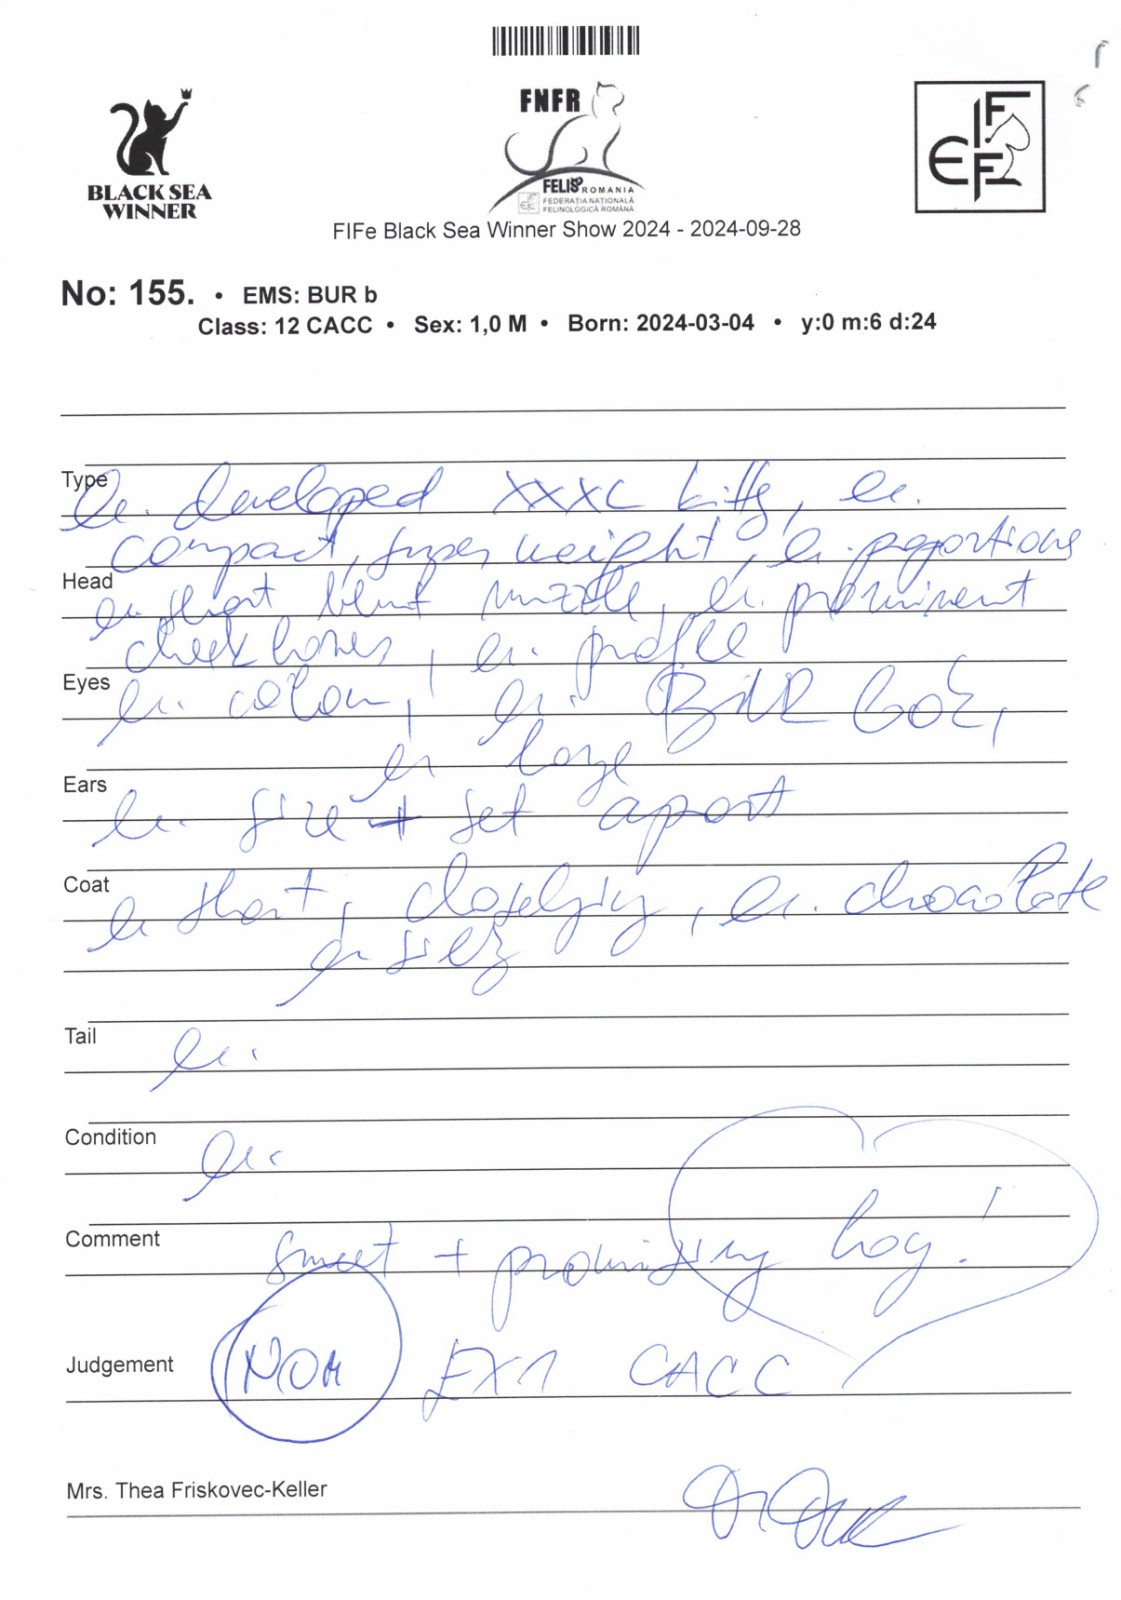 FNFR
BLACK SEA
WINNER
FELIS ROMANIA
FEDERAȚIA NAȚIONALĂ
FELINOLOGICĂ ROMÂNĂ
FIFe
FIFe Black Sea Winner Show 2024 - 2024-09-28
No: 155. • EMS: BUR b
Class: 12 CACC • Sex: 1,0 M • Born: 2024-03-04 • y:0 m:6 d:24
Type
ex. developed XXXL kitty, ex.
compact, super weight, ex. proportions
Head
ex. short blunt muzzle, ex. prominent
cheek bones, ex. profile
Eyes
ex. colour, ex. BUR look,
ex large
Ears
ex. size + set apart
Coat
ex short, closelying, ex. chocolate
ex silky
Tail
ex.
Condition
ex.
Comment
sweet + promising boy!
Judgement
NOM EX1 CACC
Mrs. Thea Friskovec-Keller